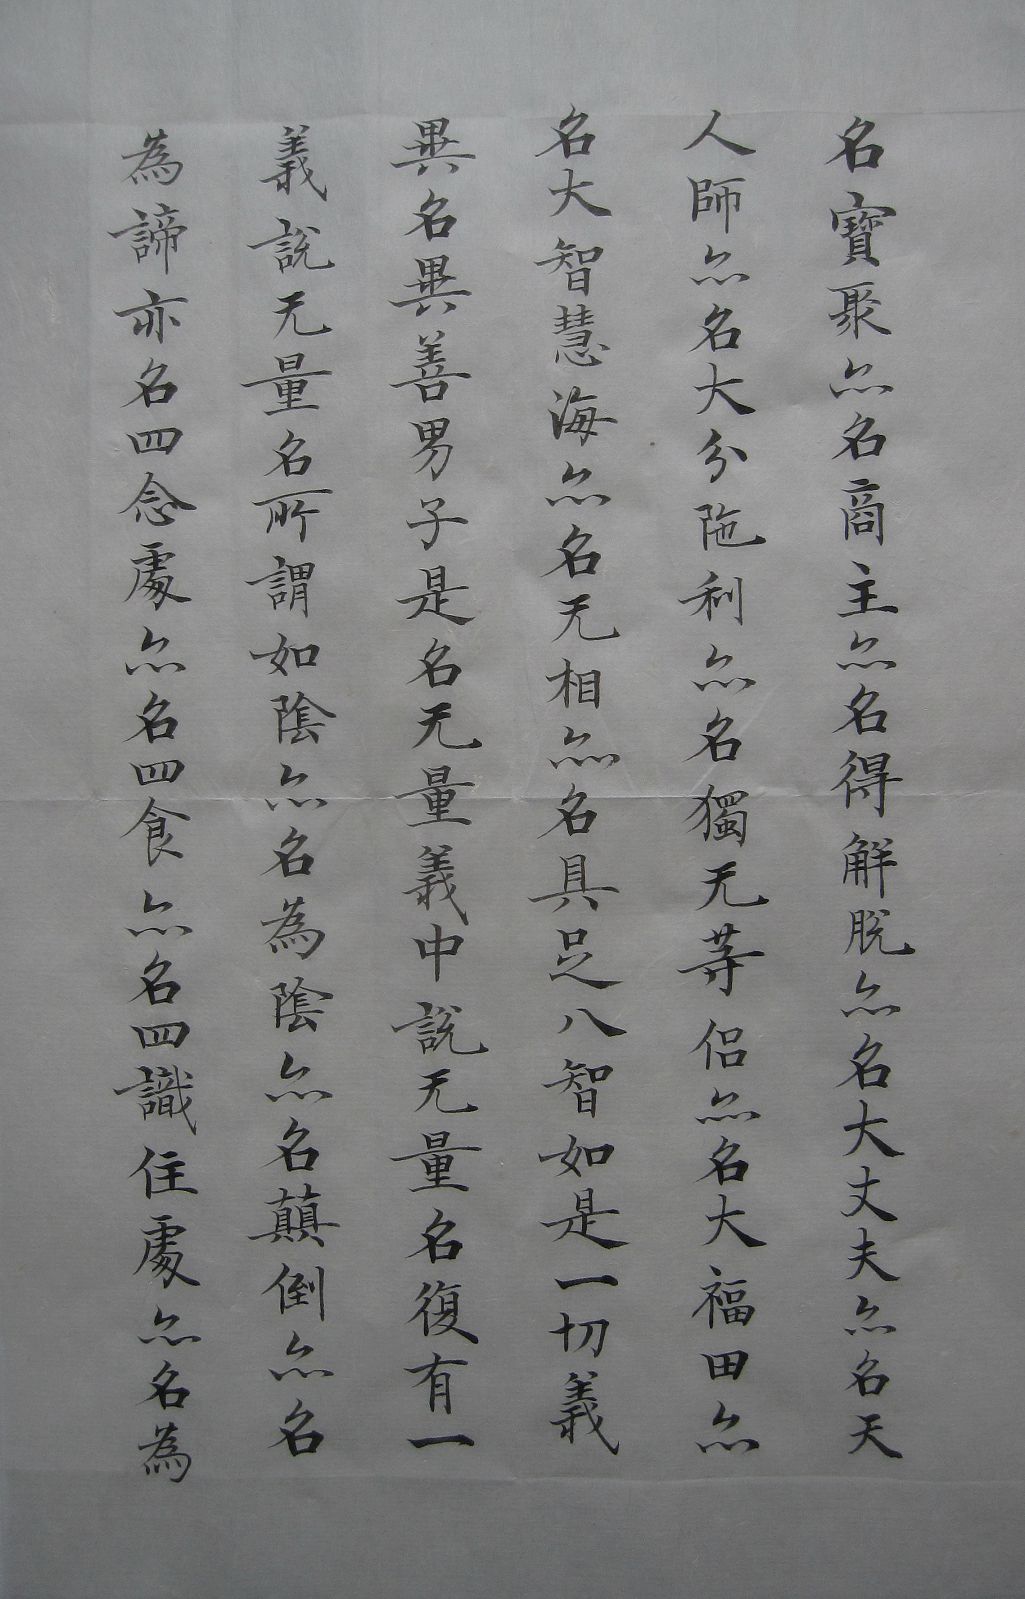 名寶聚亦名商主亦名得解脫亦名大丈夫亦名天
人師亦名大分陁利亦名獨无等侶亦名大福田亦
名大智慧海亦名无相亦名具足八智如是一切義
異名異善男子是名无量義中說无量名復有一
義說无量名所謂如陰亦名為陰亦名顛倒亦名
為諦亦名四念處亦名四食亦名四識住處亦名為